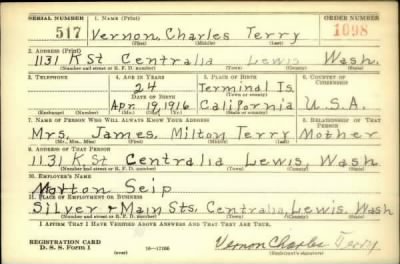 SERIAL NUMBER 1. NAME (Print) ORDER NUMBER
517 Vernon Charles Terry 1098
(First) (Middle) (Last)
2. ADDRESS (Print)
1131 K St Centralia Lewis Wash.
(Number and street or R. F. D. number) (Town) (County) (State)
3. TELEPHONE 4. AGE IN YEARS 5. PLACE OF BIRTH 6. COUNTRY OF CITIZENSHIP
24 Terminal Is.
DATE OF BIRTH (Town or county)
Apr. 19, 1916 California U.S.A.
(Exchange) (Number) (Mo.) (Day) (Yr.) (State or country)
7. NAME OF PERSON WHO WILL ALWAYS KNOW YOUR ADDRESS 8. RELATIONSHIP OF THAT PERSON
Mrs. James Milton Terry Mother
(Mr., Mrs., Miss) (First) (Middle) (Last)
9. ADDRESS OF THAT PERSON
1131 K St Centralia Lewis, Wash
(Number and street or R. F. D. number) (Town) (County) (State)
10. EMPLOYER'S NAME
Seip
11. PLACE OF EMPLOYMENT OR BUSINESS
Silver & Main Sts. Centralia, Lewis, Wash
(Number and street or R. F. D. number) (Town) (County) (State)
I AFFIRM THAT I HAVE VERIFIED ABOVE ANSWERS AND THAT THEY ARE TRUE.
REGISTRATION CARD
D. S. S. Form 1 (over) Vernon Charles Terry
(Registrant's signature)